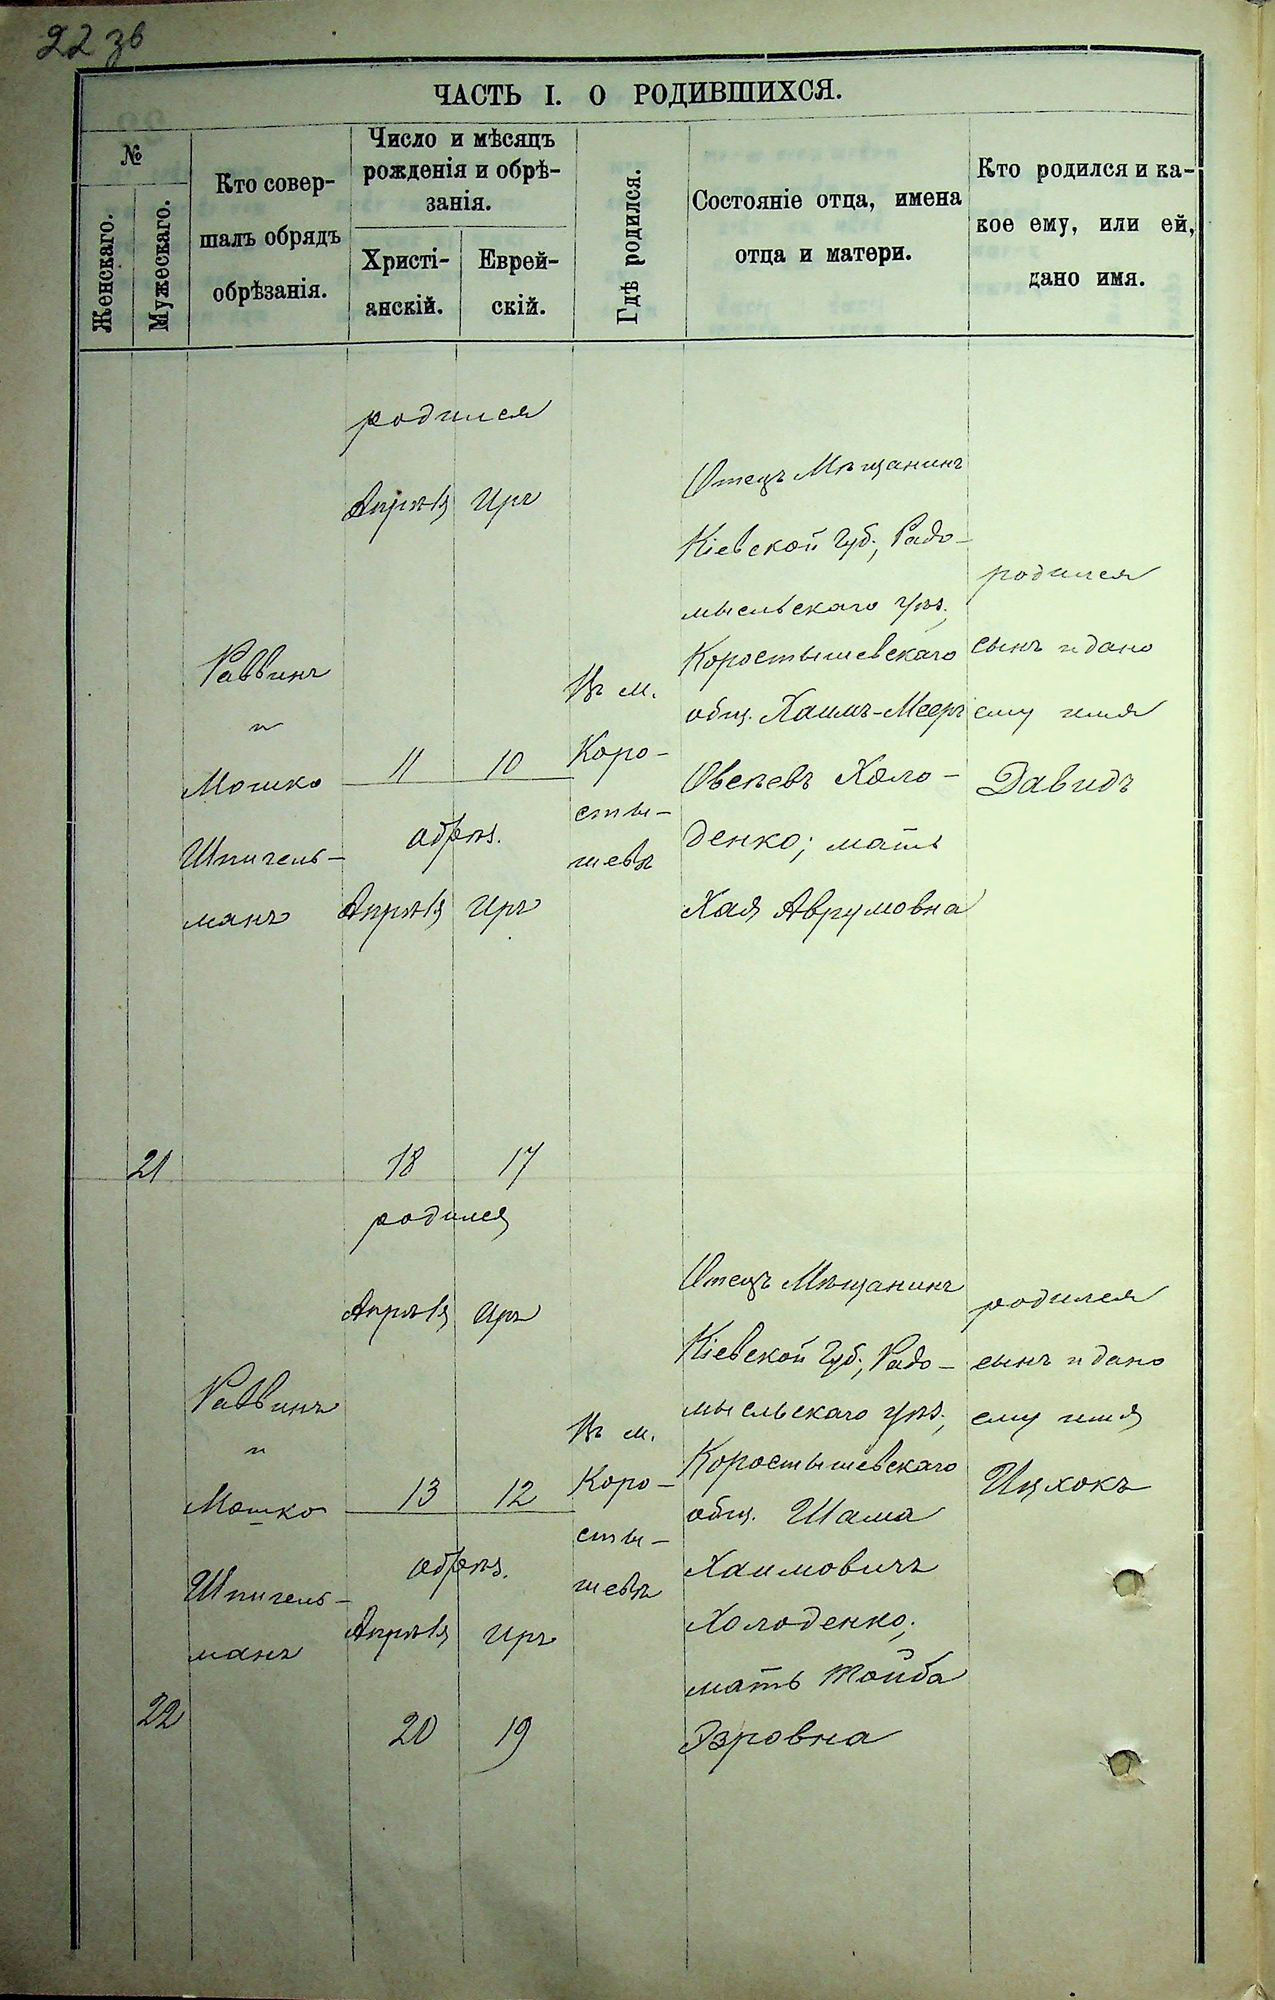 22 зв
ЧАСТЬ I. О РОДИВШИХСЯ.
№
Женскаго.
Мужескаго.
Кто совер-
шалъ обрядъ
обрѣзанія.
Число и мѣсяцъ
рожденія и обрѣ-
занія.
Христі-
анскій.
Еврей-
скій.
Гдѣ родился.
Состояніе отца, имена
отца и матери.
Кто родился и ка-
кое ему, или ей,
дано имя.
21
Раввинъ
и
Мошко
Шпигель-
манъ
родился
Апрѣля Иръ
11 10
обрѣз.
Апрѣля Иръ
18 17
Въ м.
Коро-
сты-
шевѣ
Отецъ Мѣщанинъ
Кіевской Губ., Радо-
мысльскаго уѣз.,
Коростышевскаго
общ. Хаимъ-Мееръ
Овсѣевъ Холо-
денко; мать
Хая Аврумовна
родился
сынъ и дано
ему имя
Давидъ
22
Раввинъ
и
Мошко
Шпигель-
манъ
родился
Апрѣля Иръ
13 12
обрѣз.
Апрѣля Иръ
20 19
Въ м.
Коро-
сты-
шевѣ
Отецъ Мѣщанинъ
Кіевской Губ., Радо-
мысльскаго уѣз.,
Коростышевскаго
общ. Шама
Хаимовичъ
Холоденко;
мать Тойба
Эзровна
родился
сынъ и дано
ему имя
Ицхокъ